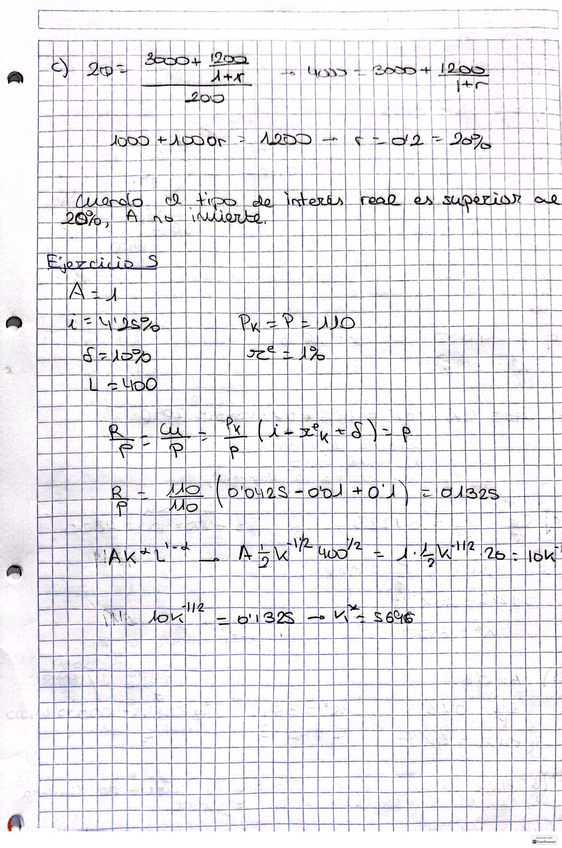 c) 20 = (3000 + 1200/(1+r))/200 → 4000 = 3000 + 1200/(1+r)
1000 + 1000r = 1200 → r = 0'2 = 20%
Cuando el tipo de interés real es superior al
20%, A no invierte.
Ejercicio 5
A = 1
i = 4'25% PK = P = 110
δ = 10% πe = 1%
L = 400
R/P = CU/P = PK/P (i - πeK + δ) = P
R/P = 110/110 (0'0425 - 0'01 + 0'1) = 0'1325
AKαL1-α → A 1/2 K-1/2 4001/2 = 1 · 1/2 K-1/2 · 20 = 10K-
10K-1/2 = 0'1325 → K* = 5696
CamScanner